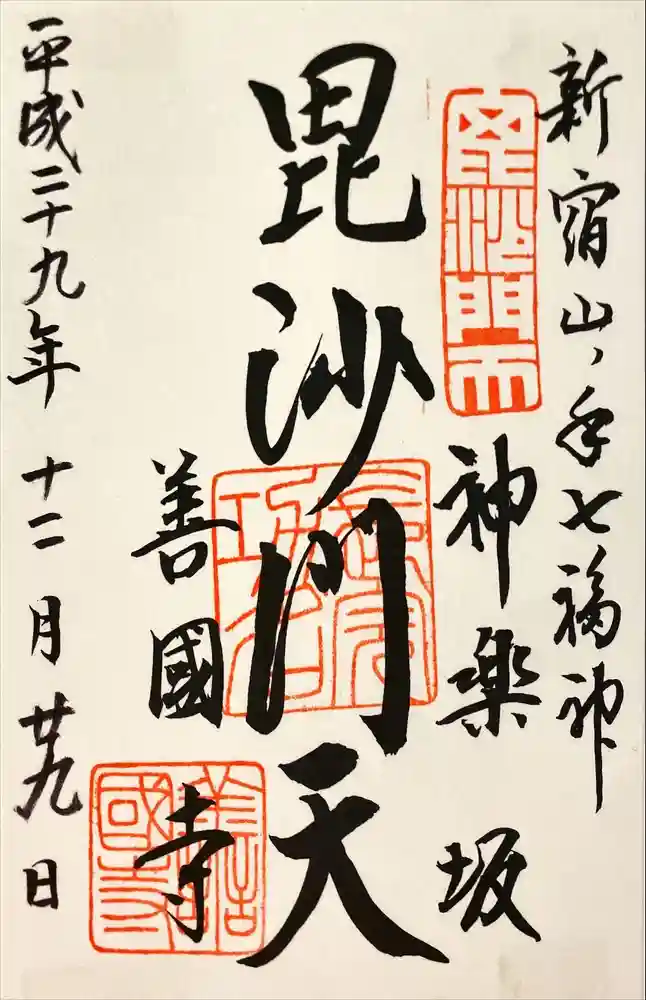 新宿山ノ手七福神
神楽坂
毘沙門天
善國寺
平成二十九年十二月廿九日
毘沙門天
善國寺